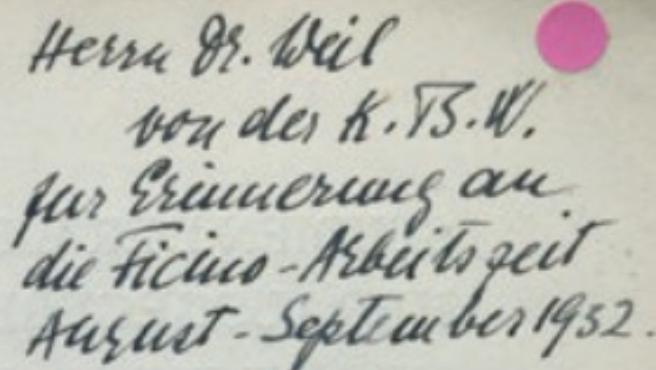 Herrn Dr. Weil
von der K.B.W.
zur Erinnerung an
die Ficino-Arbeitszeit
August-September 1932.